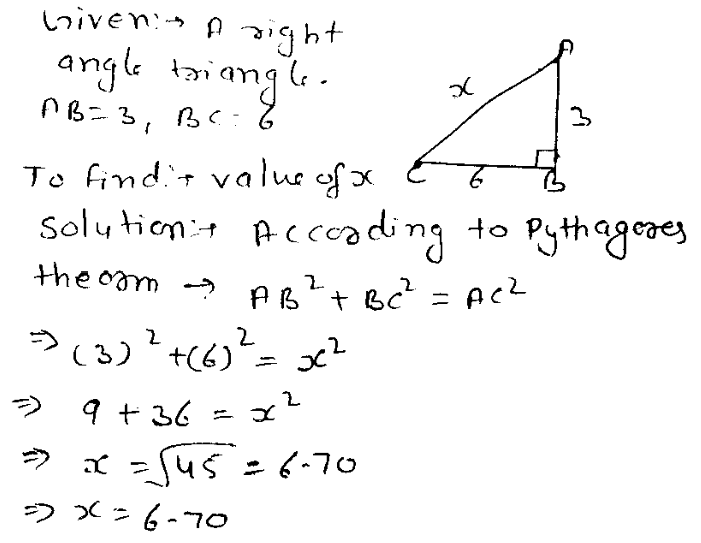 Given:→ A right
angle triangle.
AB = 3, BC = 6
A
x
3
C
6
B
To find:→ value of x
Solution:→ According to Pythagores
theorm → AB² + BC² = AC²
⇒ (3)² + (6)² = x²
⇒ 9 + 36 = x²
⇒ x = √45 = 6.70
⇒ x = 6.70